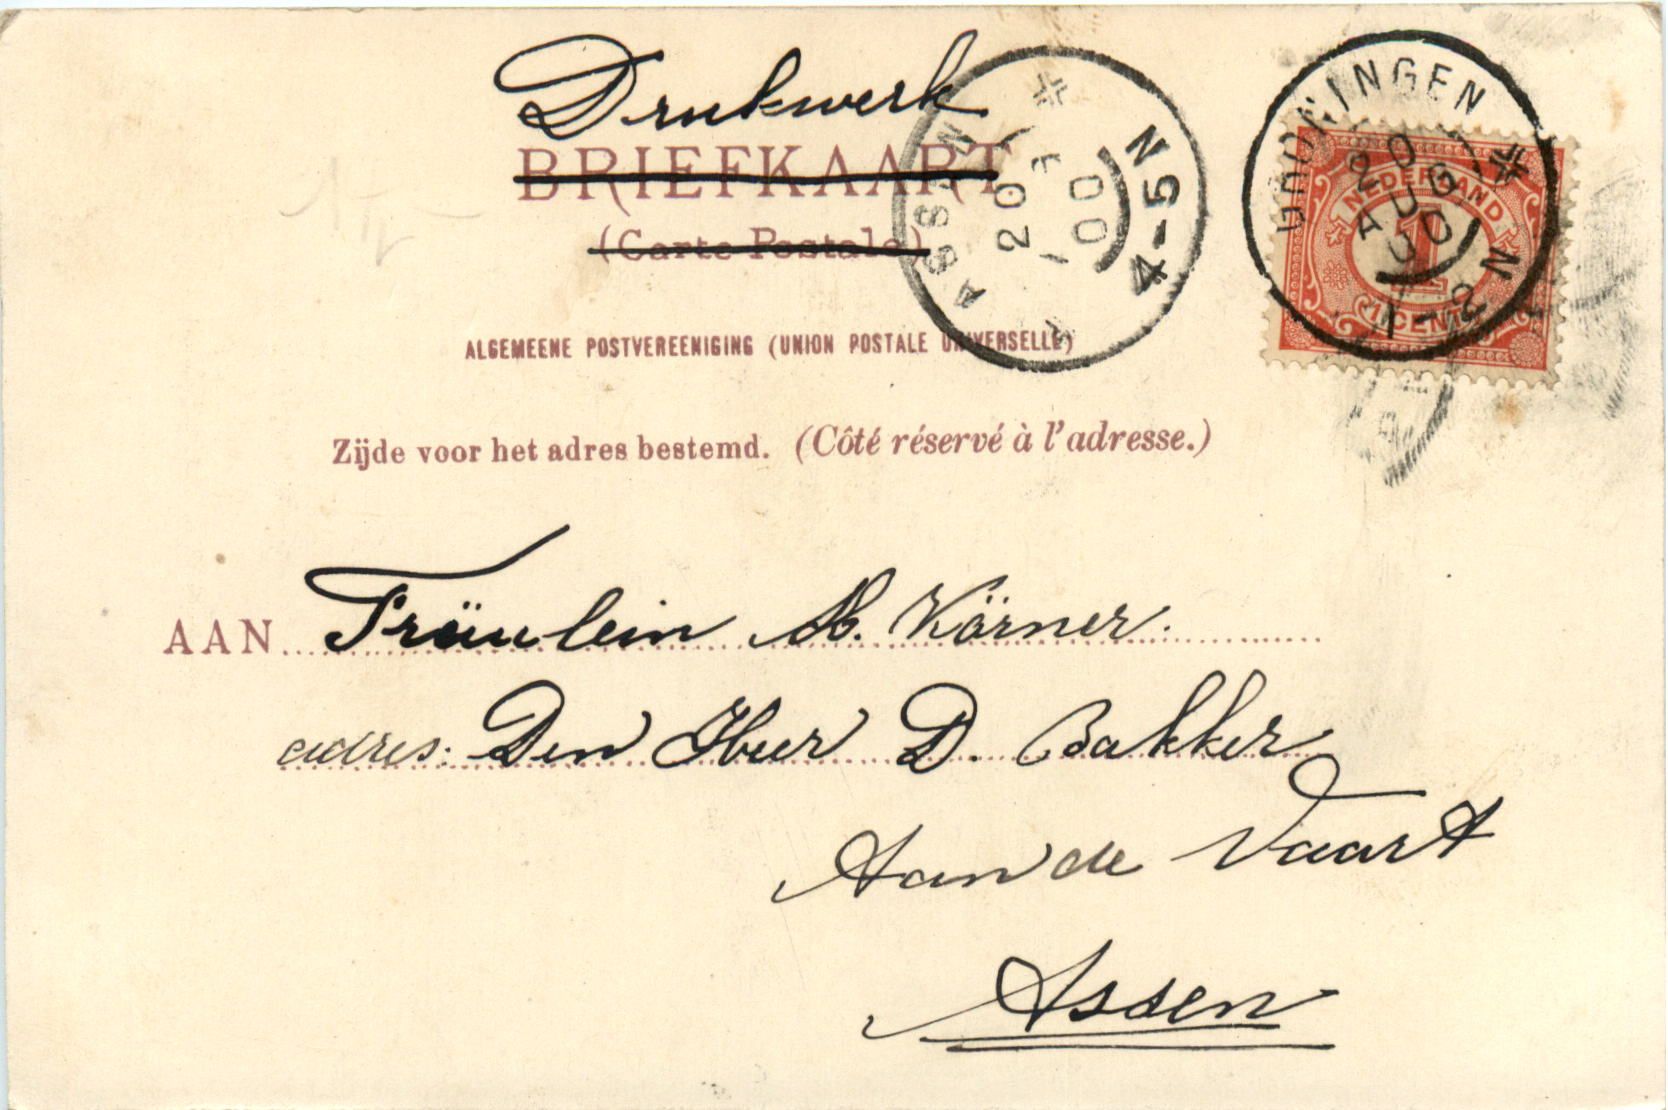 Drukwerk
BRIEFKAART
(Carte Postale)
ALGEMEENE POSTVEREENIGING (UNION POSTALE UNIVERSELLE)
Zijde voor het adres bestemd. (Côté réservé à l'adresse.)
ASSEN
20
00
4-5N
GRONINGEN
20
AUG
00
1-2N
NEDERLAND
1
1 CENT
AAN Fräulein M. Körner.
adres: Den Heer D. Bakker
Aan de Vaart
Assen